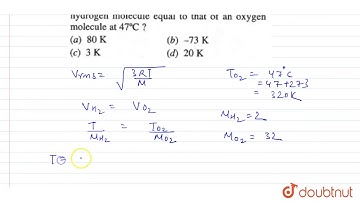 hydrogen molecule equal to that of an oxygen
molecule at 47°C ?
(a) 80 K (b) –73 K
(c) 3 K (d) 20 K
Vrms = √3RT/M TO2 = 47°C
= 47+273
= 320K
VH2 = VO2
T/MH2 = TO2/MO2 MH2 = 2
MO2 = 32
T=
doubtnut